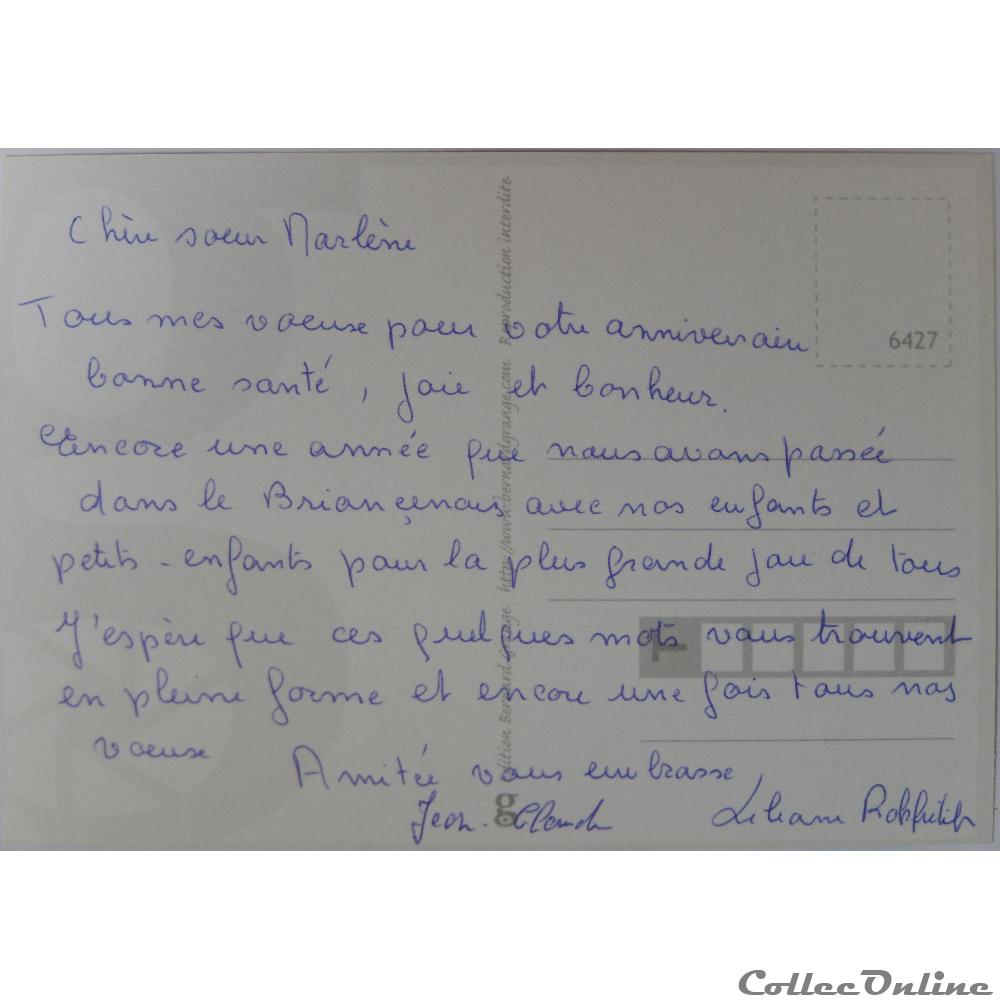 Chère soeur Marlène
Tous mes voeux pour votre anniversaire
bonne santé, joie et bonheur.
Encore une année que nous avons passée
dans le Briançonnais avec nos enfants et
petits-enfants pour la plus grande joie de tous
J'espère que ces quelques mots vous trouvent
en pleine forme et encore une fois tous nos
voeux
Amitée vous embrasse
Jean-Claude Liliane
6427
édition Bernard Grange http://www.bernardgrange.com Reproduction interdite
g
CollecOnline